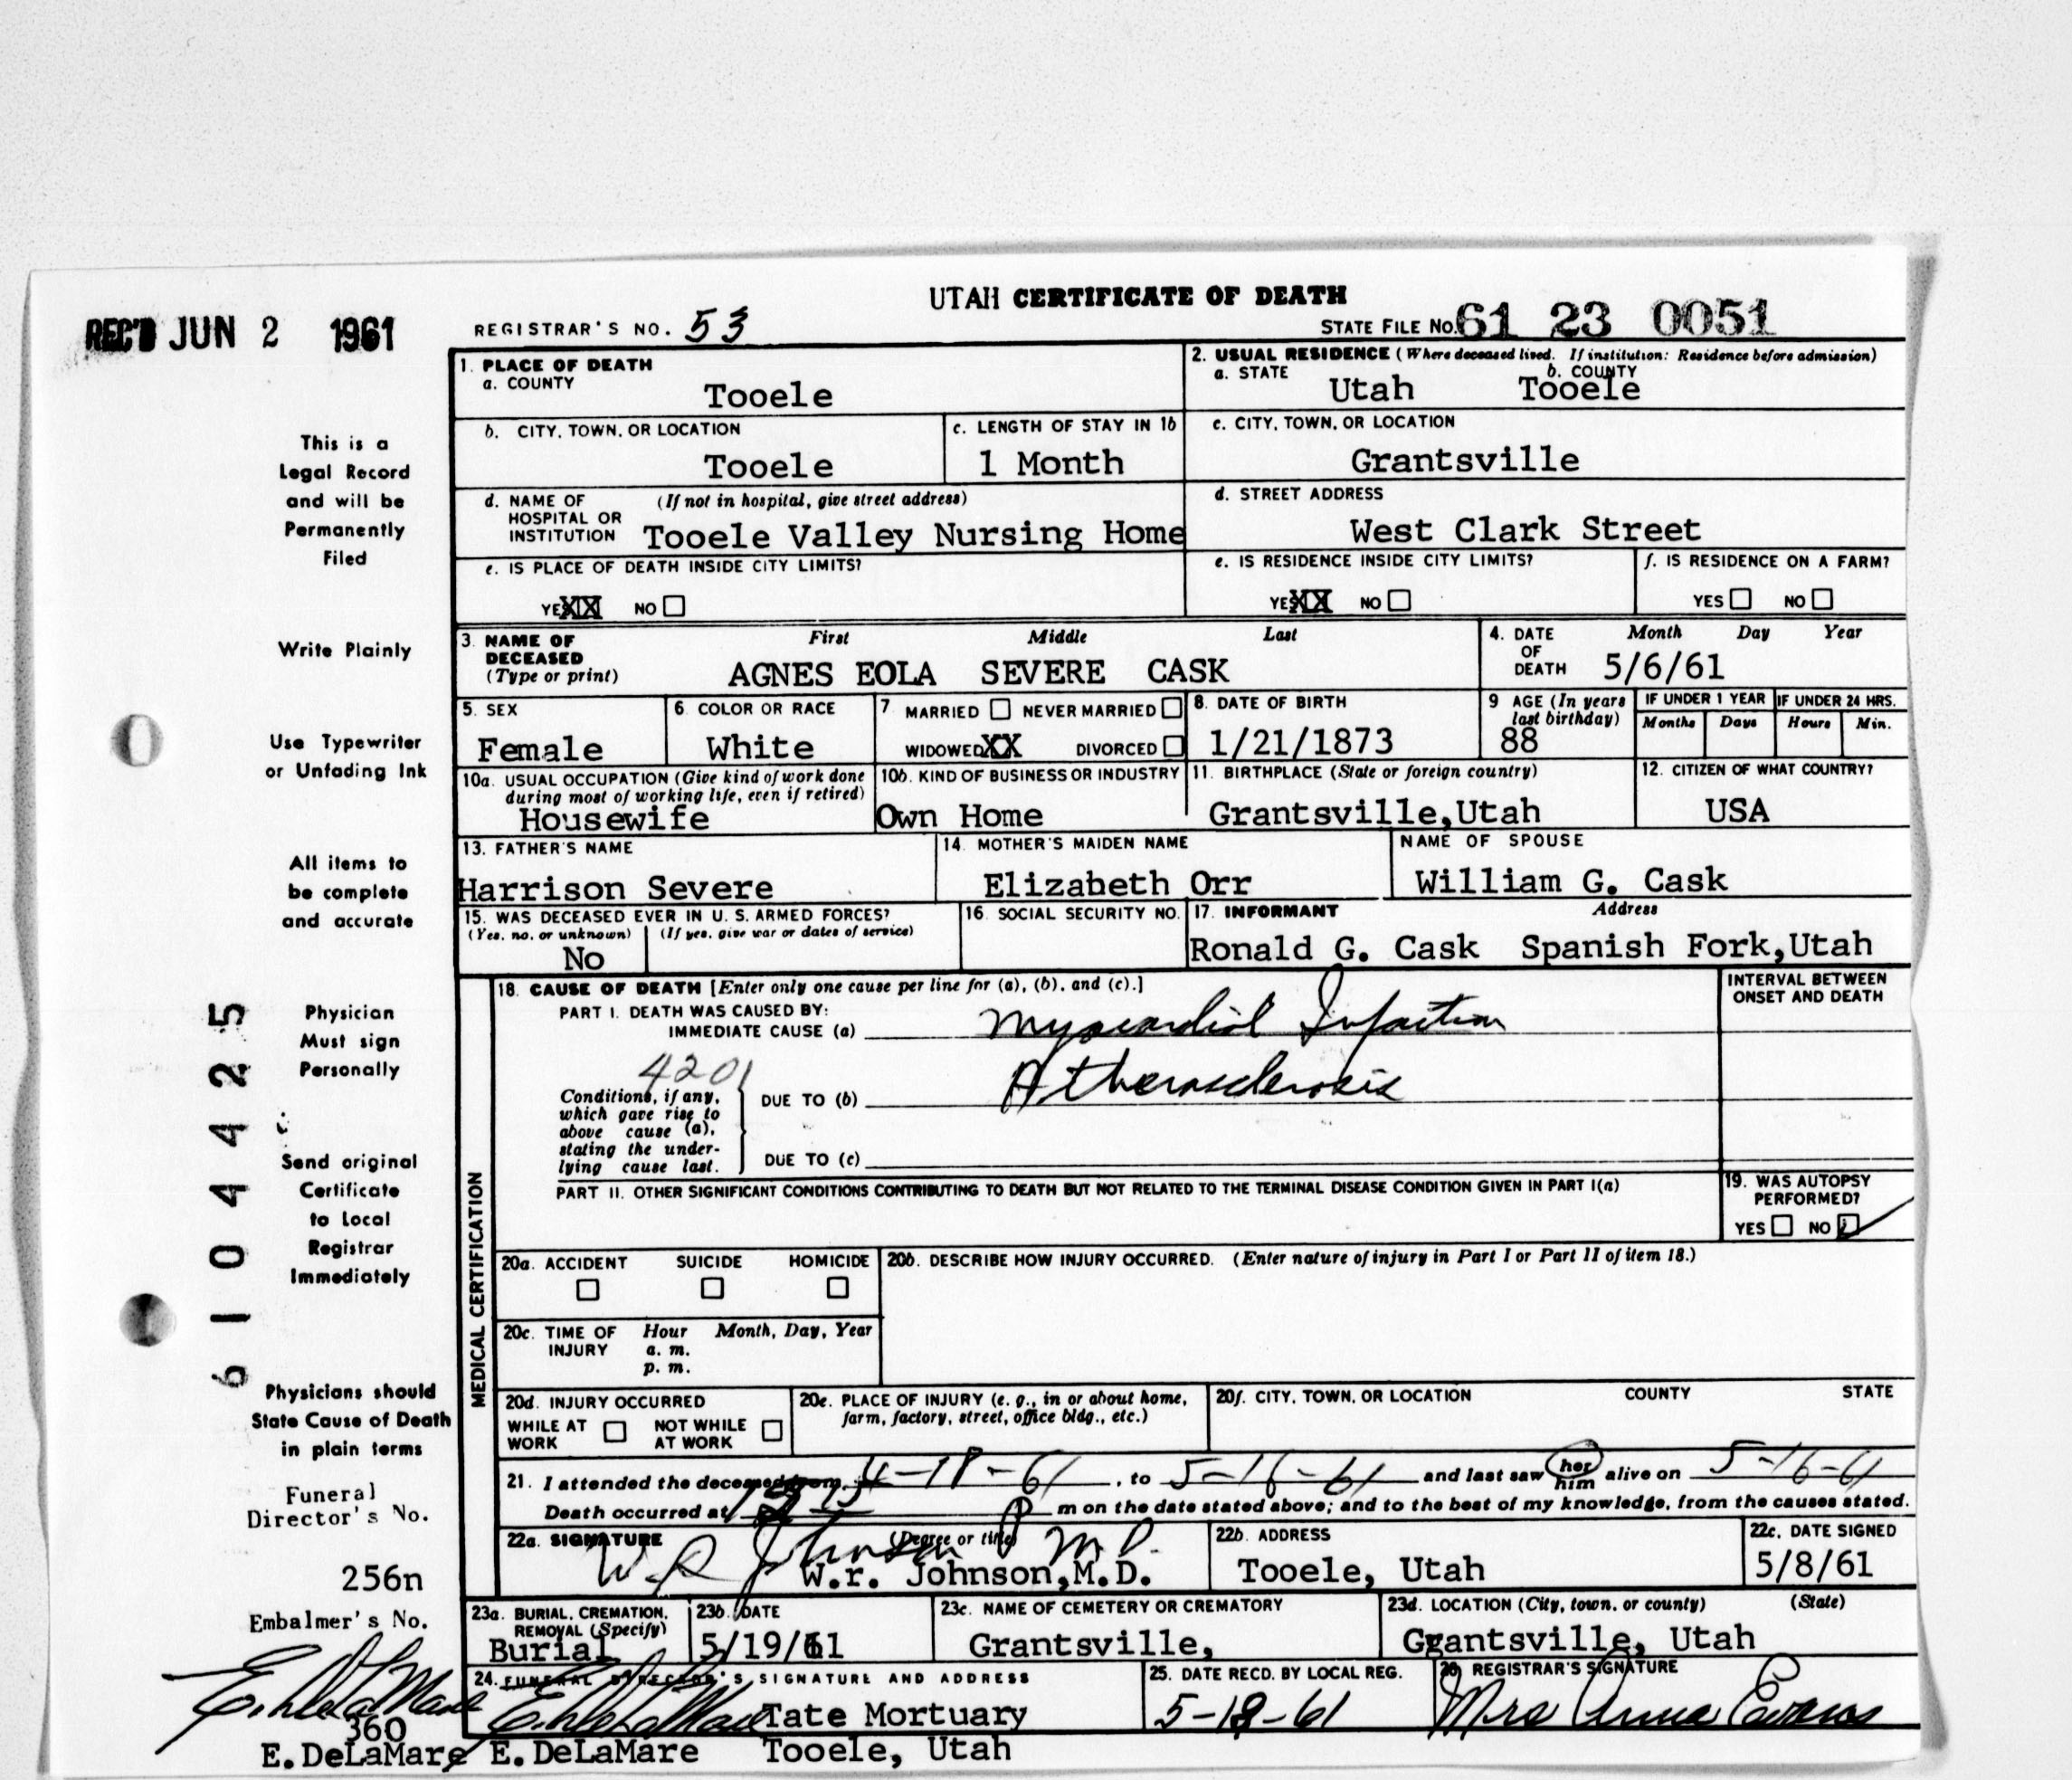 UTAH CERTIFICATE OF DEATH
REC'D JUN 2 1961
REGISTRAR'S NO. 53
STATE FILE NO. 61 23 0051
1. PLACE OF DEATH
a. COUNTY
Tooele
2. USUAL RESIDENCE (Where deceased lived. If institution: Residence before admission)
a. STATE b. COUNTY
Utah Tooele
b. CITY, TOWN, OR LOCATION
Tooele
c. LENGTH OF STAY IN 1b
1 Month
c. CITY, TOWN, OR LOCATION
Grantsville
d. NAME OF (If not in hospital, give street address)
HOSPITAL OR
INSTITUTION Tooele Valley Nursing Home
d. STREET ADDRESS
West Clark Street
e. IS PLACE OF DEATH INSIDE CITY LIMITS?
YES XX NO
e. IS RESIDENCE INSIDE CITY LIMITS?
YES XX NO
f. IS RESIDENCE ON A FARM?
YES NO
3. NAME OF DECEASED
(Type or print)
First Middle Last
AGNES EOLA SEVERE CASK
4. DATE OF DEATH
Month Day Year
5/6/61
5. SEX
Female
6. COLOR OR RACE
White
7. MARRIED NEVER MARRIED
WIDOWED XX DIVORCED
8. DATE OF BIRTH
1/21/1873
9. AGE (In years last birthday)
88
IF UNDER 1 YEAR IF UNDER 24 HRS.
Months Days Hours Min.
10a. USUAL OCCUPATION (Give kind of work done
during most of working life, even if retired)
Housewife
10b. KIND OF BUSINESS OR INDUSTRY
Own Home
11. BIRTHPLACE (State or foreign country)
Grantsville,Utah
12. CITIZEN OF WHAT COUNTRY?
USA
13. FATHER'S NAME
Harrison Severe
14. MOTHER'S MAIDEN NAME
Elizabeth Orr
NAME OF SPOUSE
William G. Cask
15. WAS DECEASED EVER IN U. S. ARMED FORCES?
(Yes, no, or unknown) (If yes, give war or dates of service)
No
16. SOCIAL SECURITY NO.
17. INFORMANT Address
Ronald G. Cask Spanish Fork,Utah
18. CAUSE OF DEATH [Enter only one cause per line for (a), (b), and (c).]
INTERVAL BETWEEN
ONSET AND DEATH
PART I. DEATH WAS CAUSED BY:
IMMEDIATE CAUSE (a) Myocardial Infaction
4201
Conditions, if any,
which gave rise to
above cause (a),
stating the under-
lying cause last.
DUE TO (b) Atherosclerosis
DUE TO (c)
PART II. OTHER SIGNIFICANT CONDITIONS CONTRIBUTING TO DEATH BUT NOT RELATED TO THE TERMINAL DISEASE CONDITION GIVEN IN PART I(a)
19. WAS AUTOPSY
PERFORMED?
YES NO
MEDICAL CERTIFICATION
20a. ACCIDENT SUICIDE HOMICIDE
20b. DESCRIBE HOW INJURY OCCURRED. (Enter nature of injury in Part I or Part II of item 18.)
20c. TIME OF INJURY
Hour Month, Day, Year
a. m.
p. m.
20d. INJURY OCCURRED
WHILE AT WORK NOT WHILE AT WORK
20e. PLACE OF INJURY (e. g., in or about home,
farm, factory, street, office bldg., etc.)
20f. CITY, TOWN, OR LOCATION COUNTY STATE
21. I attended the deceased from 4-18-61, to 5-16-61 and last saw her him alive on 5-16-61
Death occurred at P m on the date stated above; and to the best of my knowledge, from the causes stated.
22a. SIGNATURE (Degree or title)
W. R Johnson M D.
W.r. Johnson,M.D.
22b. ADDRESS
Tooele, Utah
22c. DATE SIGNED
5/8/61
23a. BURIAL, CREMATION,
REMOVAL (Specify)
Burial
23b. DATE
5/19/61
23c. NAME OF CEMETERY OR CREMATORY
Grantsville,
23d. LOCATION (City, town, or county) (State)
Grantsville, Utah
24. FUNERAL DIRECTOR'S SIGNATURE AND ADDRESS
E. DeLaMare Tate Mortuary
E. DeLaMare Tooele, Utah
25. DATE RECD. BY LOCAL REG.
5-18-61
26. REGISTRAR'S SIGNATURE
Mrs Anna Evans
This is a
Legal Record
and will be
Permanently
Filed
Write Plainly
Use Typewriter
or Unfading Ink
All items to
be complete
and accurate
Physician
Must sign
Personally
Send original
Certificate
to Local
Registrar
Immediately
Physicians should
State Cause of Death
in plain terms
Funeral
Director's No.
256n
Embalmer's No.
E. DeLaMare
360
E. DeLaMare
6104425